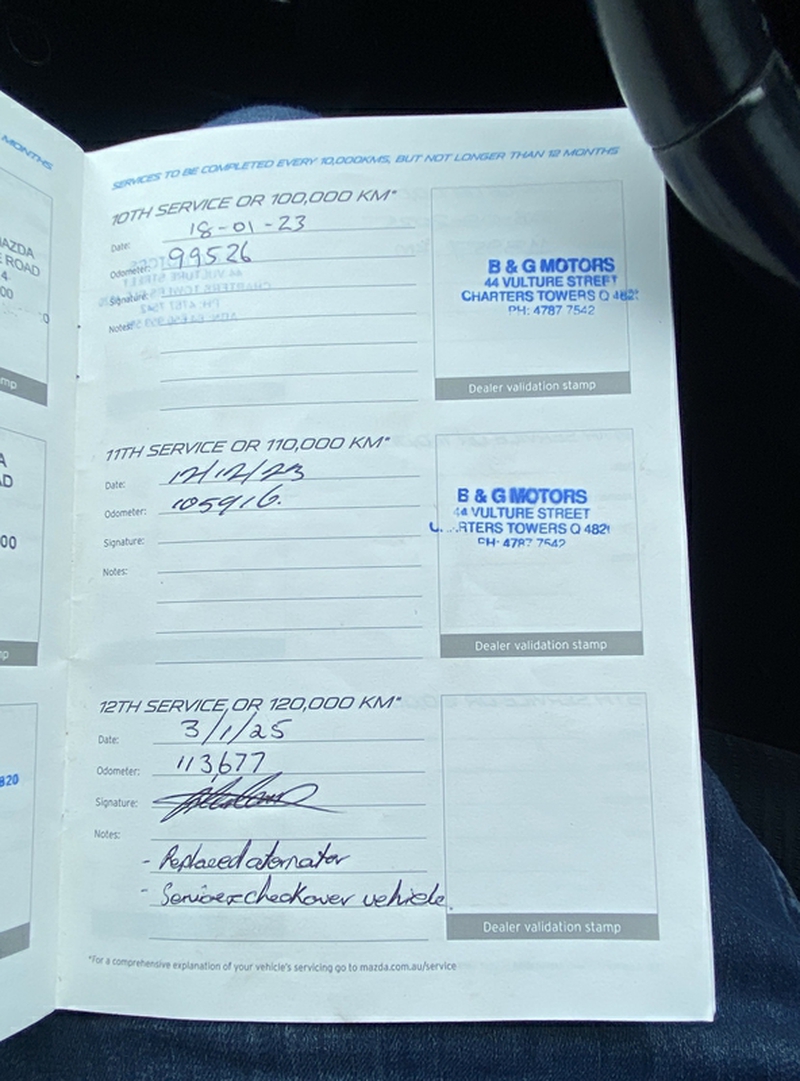 MONTHS
AZDA
E ROAD
4
00
mp
A
D
00
p
820
SERVICES TO BE COMPLETED EVERY 10,000KMS, BUT NOT LONGER THAN 12 MONTHS
10TH SERVICE OR 100,000 KM*
Date: 18-01-23
Odometer: 99526
Signature:
Notes:
B & G MOTORS
44 VULTURE STREET
CHARTERS TOWERS Q 482
PH: 4787 7542
Dealer validation stamp
11TH SERVICE OR 110,000 KM*
Date: 12/12/23
Odometer: 105916.
Signature:
Notes:
B & G MOTORS
44 VULTURE STREET
RTERS TOWERS Q 482
PH: 4787 7542
Dealer validation stamp
12TH SERVICE OR 120,000 KM*
Date: 3/1/25
Odometer: 113677
Signature:
Notes:
- Replaced aternator
- Service & checkover vehicle.
Dealer validation stamp
*For a comprehensive explanation of your vehicle's servicing go to mazda.com.au/service